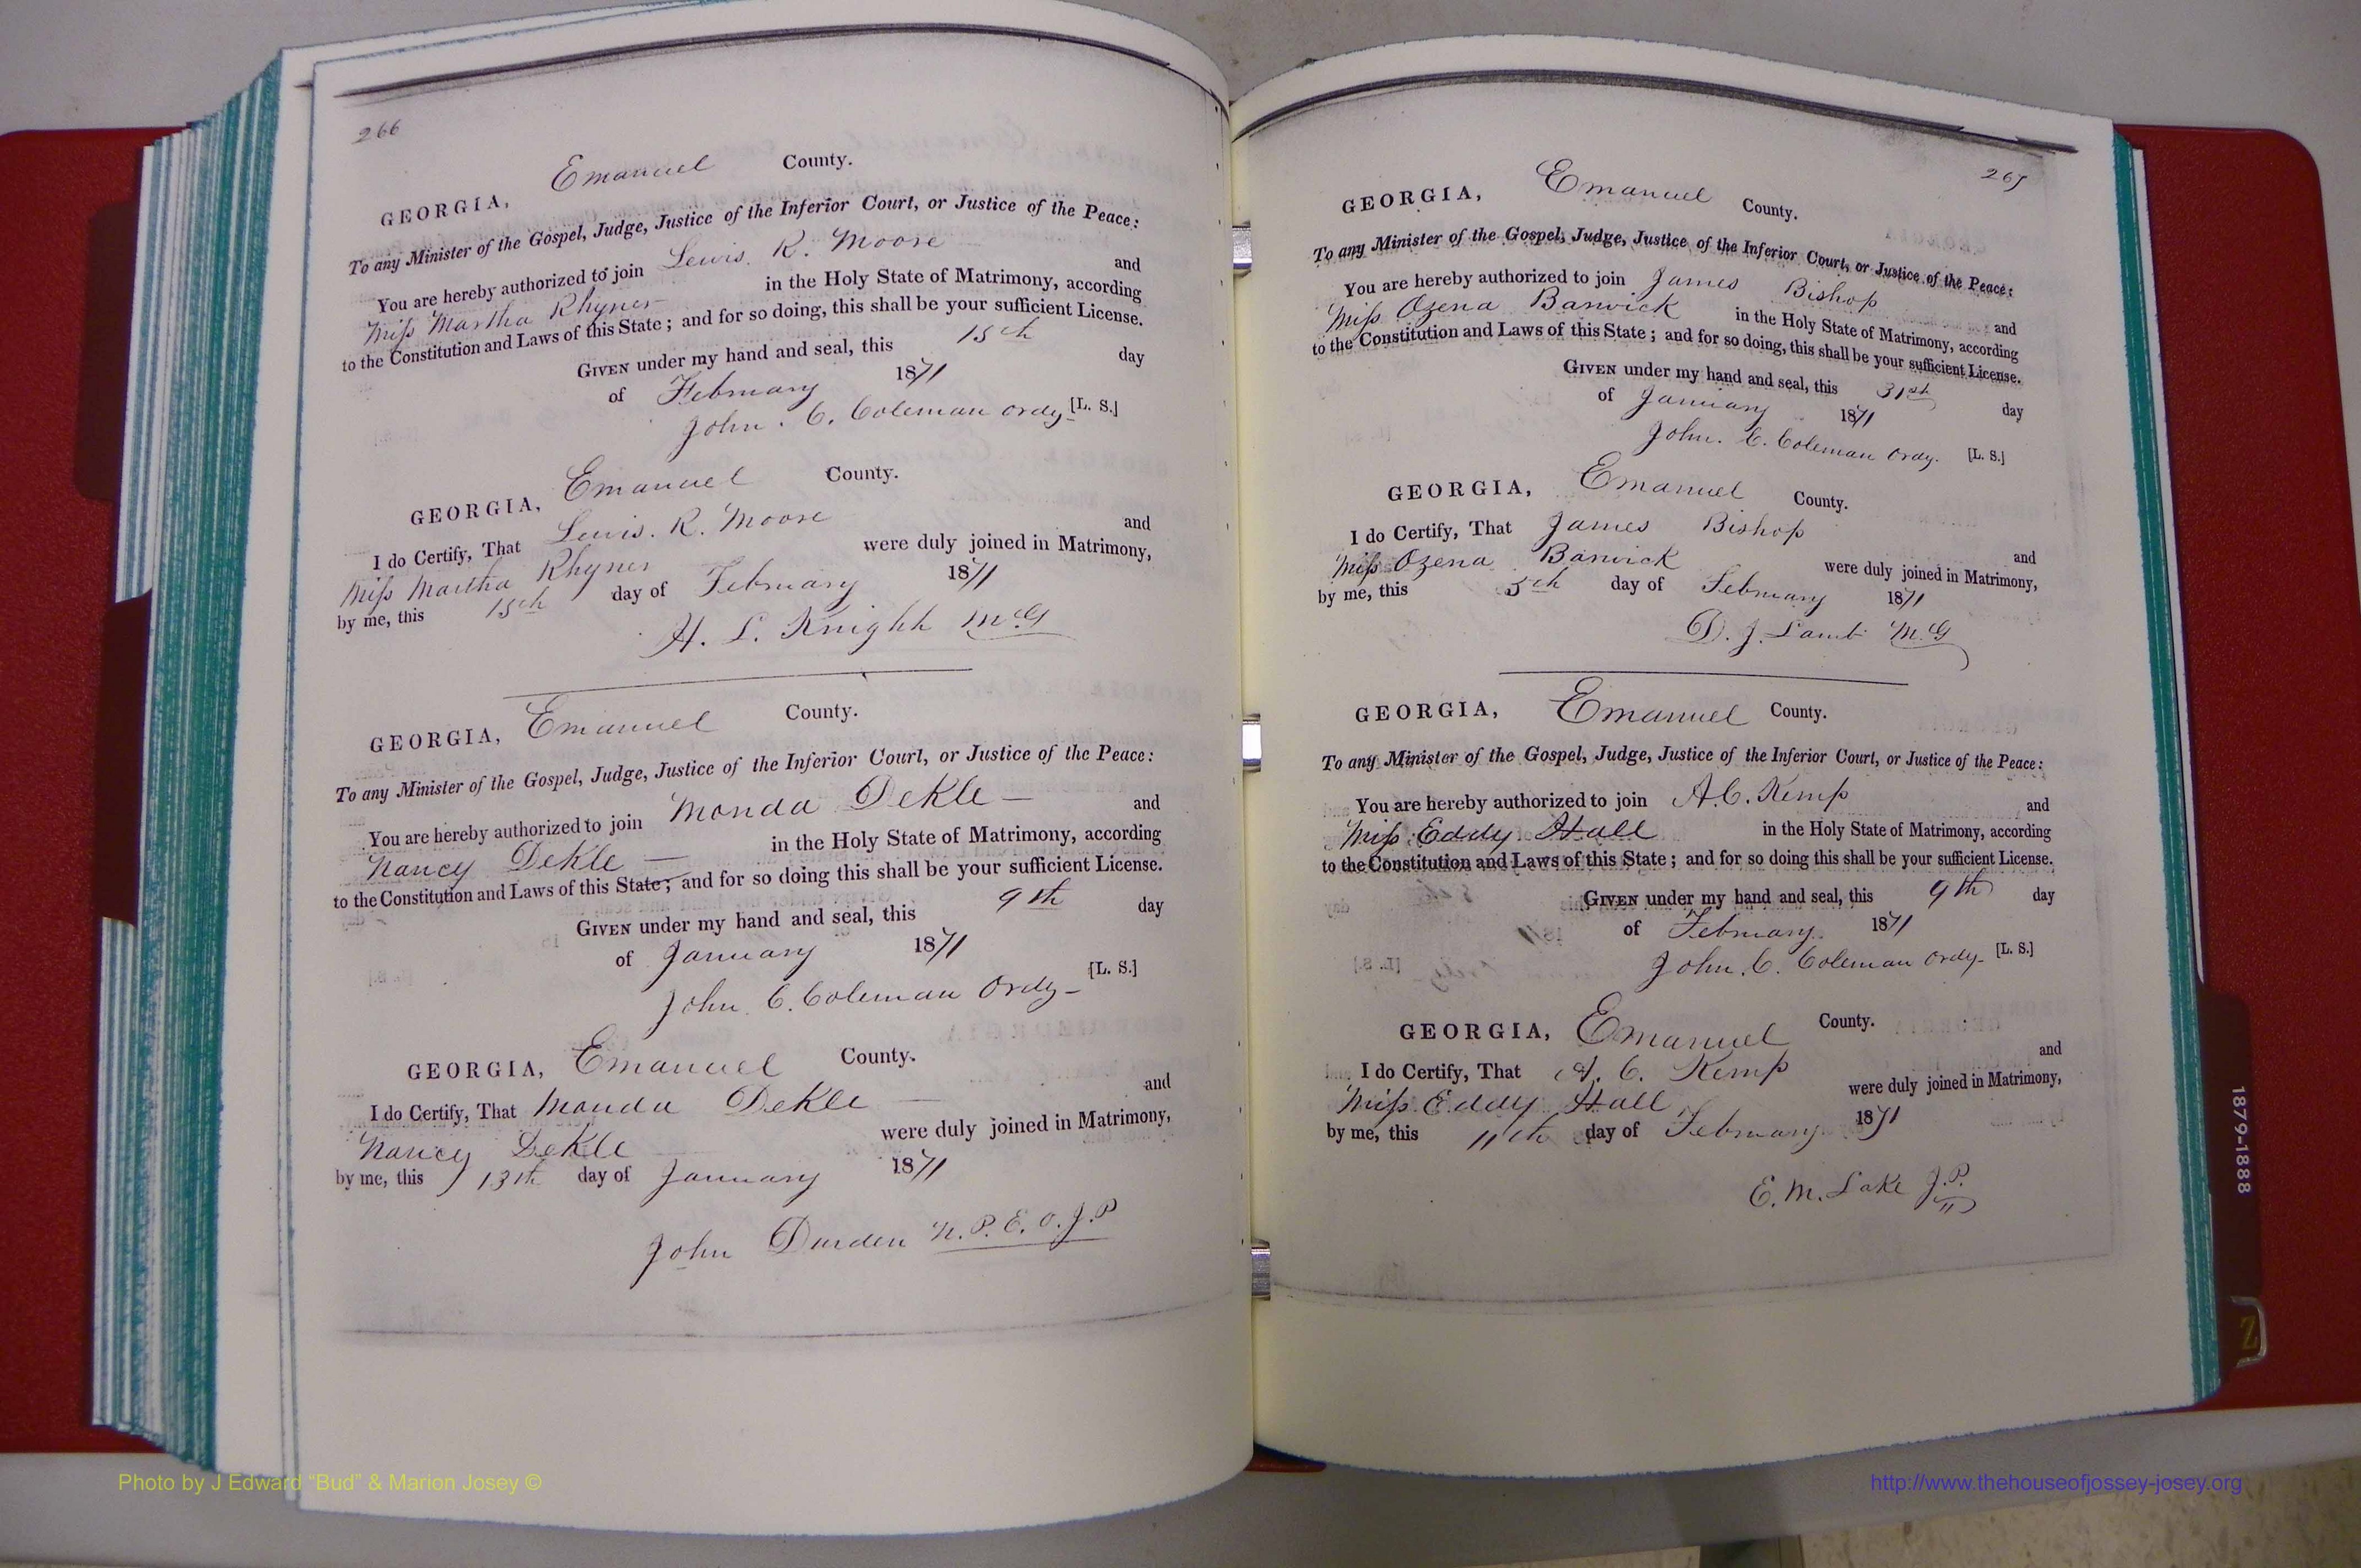 266
GEORGIA, Emanuel County.
To any Minister of the Gospel, Judge, Justice of the Inferior Court, or Justice of the Peace:
You are hereby authorized to join Lewis. R. Moore and
Miss Martha Rhyner in the Holy State of Matrimony, according
to the Constitution and Laws of this State; and for so doing, this shall be your sufficient License.
GIVEN under my hand and seal, this 15th day
of February 1871
John. C. Coleman Ordy [L. S.]
GEORGIA, Emanuel County.
I do Certify, That Lewis. R. Moore and
Miss Martha Rhyner were duly joined in Matrimony,
by me, this 15th day of February 1871
H. L. Knight M.G
GEORGIA, Emanuel County.
To any Minister of the Gospel, Judge, Justice of the Inferior Court, or Justice of the Peace:
You are hereby authorized to join Monda DeKle and
Nancy DeKle in the Holy State of Matrimony, according
to the Constitution and Laws of this State; and for so doing this shall be your sufficient License.
GIVEN under my hand and seal, this 9th day
of January 1871
John. C. Coleman Ordy [L. S.]
GEORGIA, Emanuel County.
I do Certify, That Monda DeKle and
Nancy DeKle were duly joined in Matrimony,
by me, this 13th day of January 1871
John Durden N. P. E. O. J. P
GEORGIA, Emanuel County.
To any Minister of the Gospel, Judge, Justice of the Inferior Court, or Justice of the Peace:
You are hereby authorized to join James Bishop and
Miss Ozena Barwick in the Holy State of Matrimony, according
to the Constitution and Laws of this State; and for so doing, this shall be your sufficient License.
GIVEN under my hand and seal, this 31st day
of January 1871
John. C. Coleman Ordy. [L. S.]
GEORGIA, Emanuel County.
I do Certify, That James Bishop and
Miss Ozena Barwick were duly joined in Matrimony,
by me, this 5th day of February 1871
D. J. Lamb M.G
GEORGIA, Emanuel County.
To any Minister of the Gospel, Judge, Justice of the Inferior Court, or Justice of the Peace:
You are hereby authorized to join A. C. Kemp and
Miss Eddy Hall in the Holy State of Matrimony, according
to the Constitution and Laws of this State; and for so doing this shall be your sufficient License.
GIVEN under my hand and seal, this 9th day
of February 1871
John. C. Coleman Ordy [L. S.]
GEORGIA, Emanuel County.
I do Certify, That A. C. Kemp and
Miss. Eddy Hall were duly joined in Matrimony,
by me, this 11th day of February 1871
E. M. Lake J.P.
1879-1888
Z
Photo by J Edward “Bud” & Marion Josey ©
http://www.thehouseofjossey-josey.org